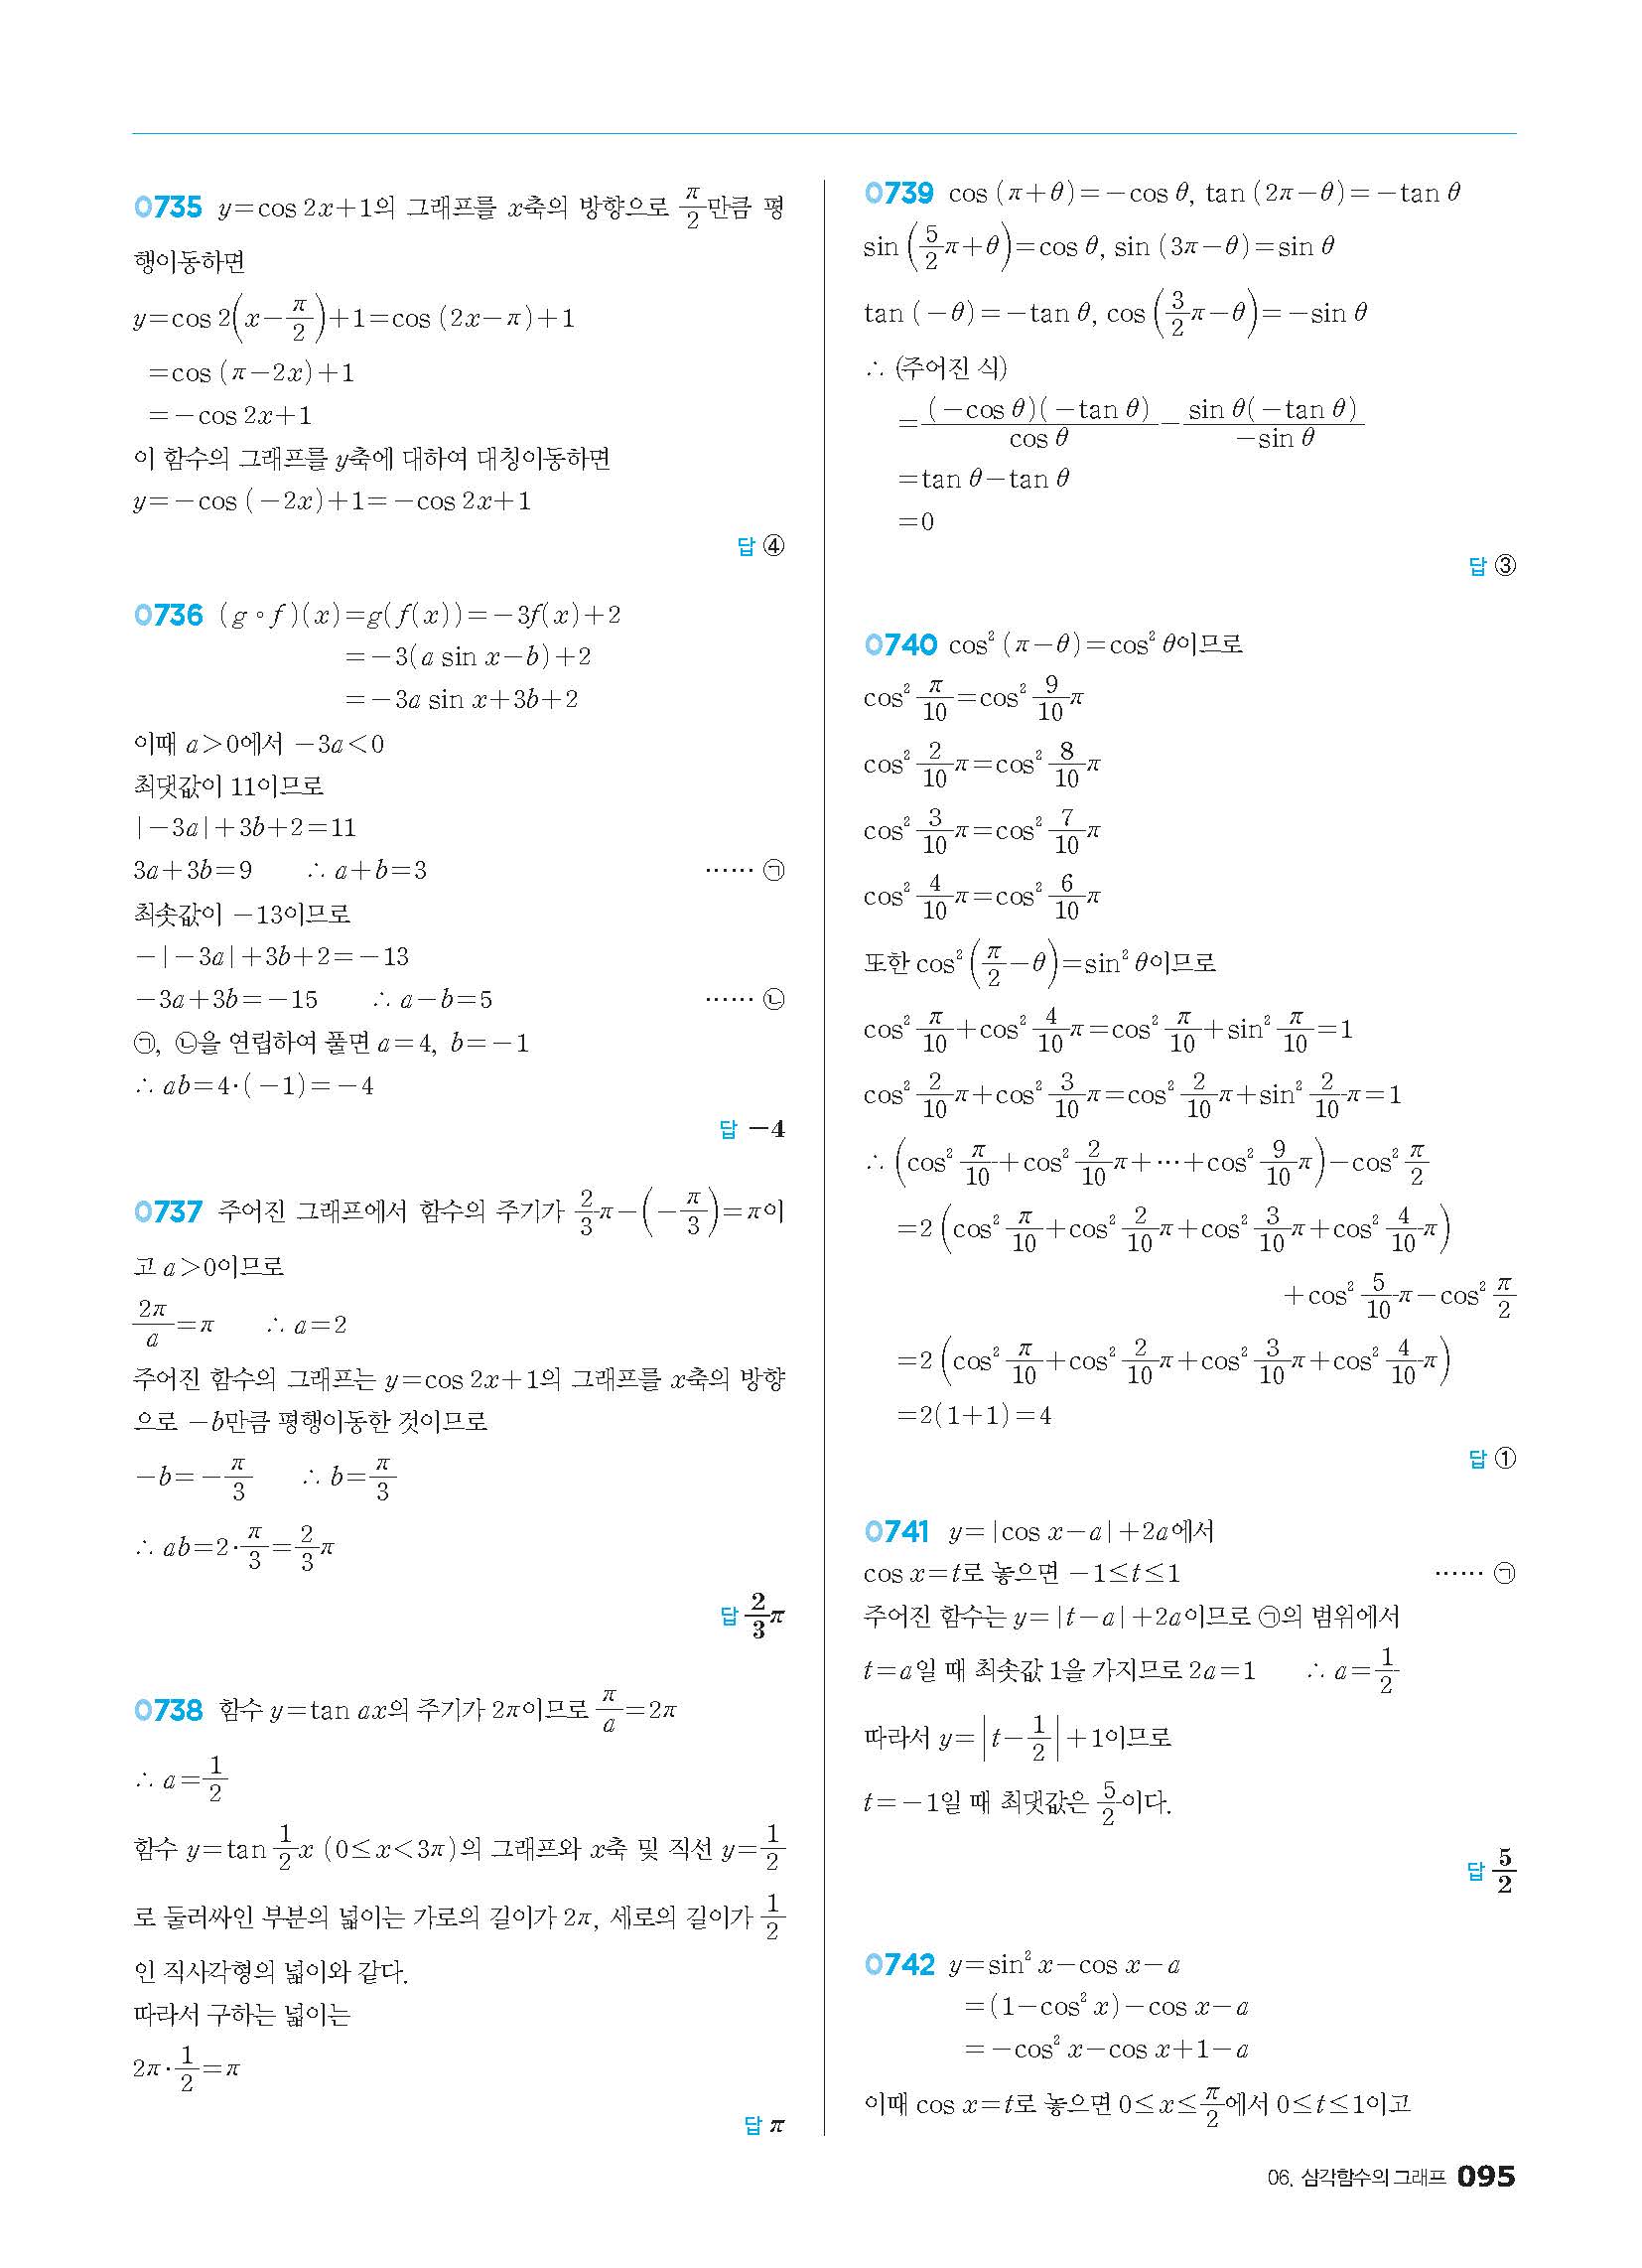 0735 y=cos 2x+1의 그래프를 x축의 방향으로 π/2만큼 평
행이동하면
y=cos 2(x-π/2)+1=cos (2x-π)+1
=cos (π-2x)+1
=-cos 2x+1
이 함수의 그래프를 y축에 대하여 대칭이동하면
y=-cos (-2x)+1=-cos 2x+1
답 ④
0736 (g∘f)(x)=g(f(x))=-3f(x)+2
=-3(a sin x-b)+2
=-3a sin x+3b+2
이때 a>0에서 -3a<0
최댓값이 11이므로
|-3a|+3b+2=11
3a+3b=9 ∴ a+b=3 …… ㉠
최솟값이 -13이므로
-|-3a|+3b+2=-13
-3a+3b=-15 ∴ a-b=5 …… ㉡
㉠, ㉡을 연립하여 풀면 a=4, b=-1
∴ ab=4·(-1)=-4
답 -4
0737 주어진 그래프에서 함수의 주기가 2/3π-(-π/3)=π이
고 a>0이므로
2π/a=π ∴ a=2
주어진 함수의 그래프는 y=cos 2x+1의 그래프를 x축의 방향
으로 -b만큼 평행이동한 것이므로
-b=-π/3 ∴ b=π/3
∴ ab=2·π/3=2/3π
답 2/3π
0738 함수 y=tan ax의 주기가 2π이므로 π/a=2π
∴ a=1/2
함수 y=tan 1/2x (0≤x<3π)의 그래프와 x축 및 직선 y=1/2
로 둘러싸인 부분의 넓이는 가로의 길이가 2π, 세로의 길이가 1/2
인 직사각형의 넓이와 같다.
따라서 구하는 넓이는
2π·1/2=π
답 π
0739 cos (π+θ)=-cos θ, tan (2π-θ)=-tan θ
sin (5/2π+θ)=cos θ, sin (3π-θ)=sin θ
tan (-θ)=-tan θ, cos (3/2π-θ)=-sin θ
∴ (주어진 식)
=(-cos θ)(-tan θ)/cos θ - sin θ(-tan θ)/-sin θ
=tan θ-tan θ
=0
답 ③
0740 cos² (π-θ)=cos² θ이므로
cos² π/10=cos² 9/10π
cos² 2/10π=cos² 8/10π
cos² 3/10π=cos² 7/10π
cos² 4/10π=cos² 6/10π
또한 cos² (π/2-θ)=sin² θ이므로
cos² π/10+cos² 4/10π=cos² π/10+sin² π/10=1
cos² 2/10π+cos² 3/10π=cos² 2/10π+sin² 2/10π=1
∴ (cos² π/10+cos² 2/10π+…+cos² 9/10π)-cos² π/2
=2(cos² π/10+cos² 2/10π+cos² 3/10π+cos² 4/10π)
+cos² 5/10π-cos² π/2
=2(cos² π/10+cos² 2/10π+cos² 3/10π+cos² 4/10π)
=2(1+1)=4
답 ①
0741 y=|cos x-a|+2a에서
cos x=t로 놓으면 -1≤t≤1 …… ㉠
주어진 함수는 y=|t-a|+2a이므로 ㉠의 범위에서
t=a일 때 최솟값 1을 가지므로 2a=1 ∴ a=1/2
따라서 y=|t-1/2|+1이므로
t=-1일 때 최댓값은 5/2이다.
답 5/2
0742 y=sin² x-cos x-a
=(1-cos² x)-cos x-a
=-cos² x-cos x+1-a
이때 cos x=t로 놓으면 0≤x≤π/2에서 0≤t≤1이고
06. 삼각함수의 그래프 095